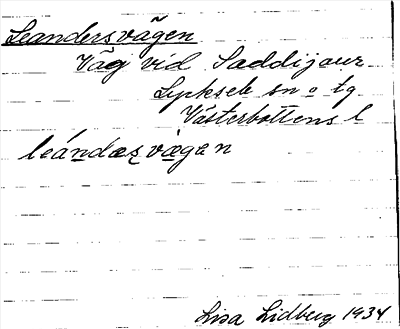 Leandersvägen
Väg vid Saddijaur
Lycksele sn o tg.
Västerbottens l
leándæʐvægen
Lisa Lidberg 1934